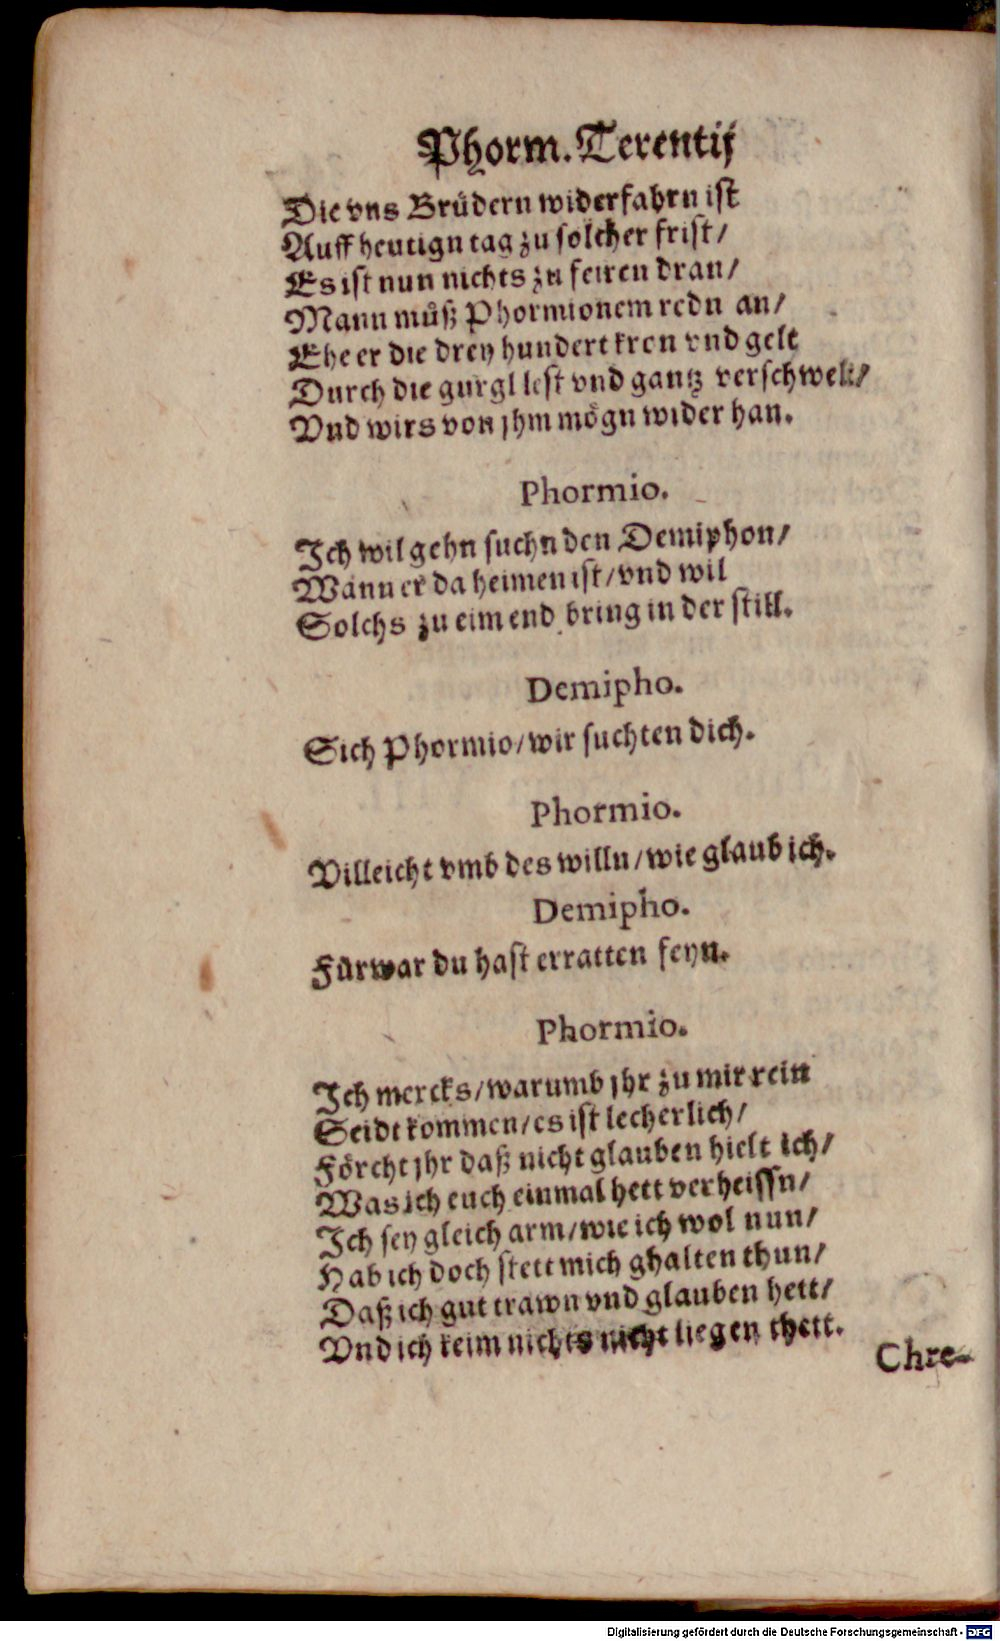 Phorm. Terentij
Die vns Brüdern widerfahrn ist
Auff heutign tag zu solcher frist/
Es ist nun nichts zu feiren dran/
Mann můß Phormionem redn an/
Ehe er die drey hundert kron vnd gelt
Durch die gurgl lest vnd gantz verschwelt/
Vnd wirs von jhm mögn wider han.
Phormio.
Ich wil gehn suchn den Demiphon/
Wann er da heimen ist/vnd wil
Solchs zu eim end bring in der still.
Demipho.
Sich Phormio/wir suchten dich.
Phormio.
Villeicht vmb des willn/wie glaub ich.
Demipho.
Fürwar du hast erratten feyn.
Phormio.
Ich mercks/warumb jhr zu mir rein
Seidt kommen/es ist lecherlich/
Förcht jhr daß nicht glauben hielt ich/
Was ich euch einmal hett verheissn/
Ich sey gleich arm/wie ich wol nun/
Hab ich doch stett mich ghalten thun/
Daß ich gut trawn vnd glauben hett/
Vnd ich keim nichts nicht liegen thett.
Chre-
Digitalisierung gefördert durch die Deutsche Forschungsgemeinschaft - DFG